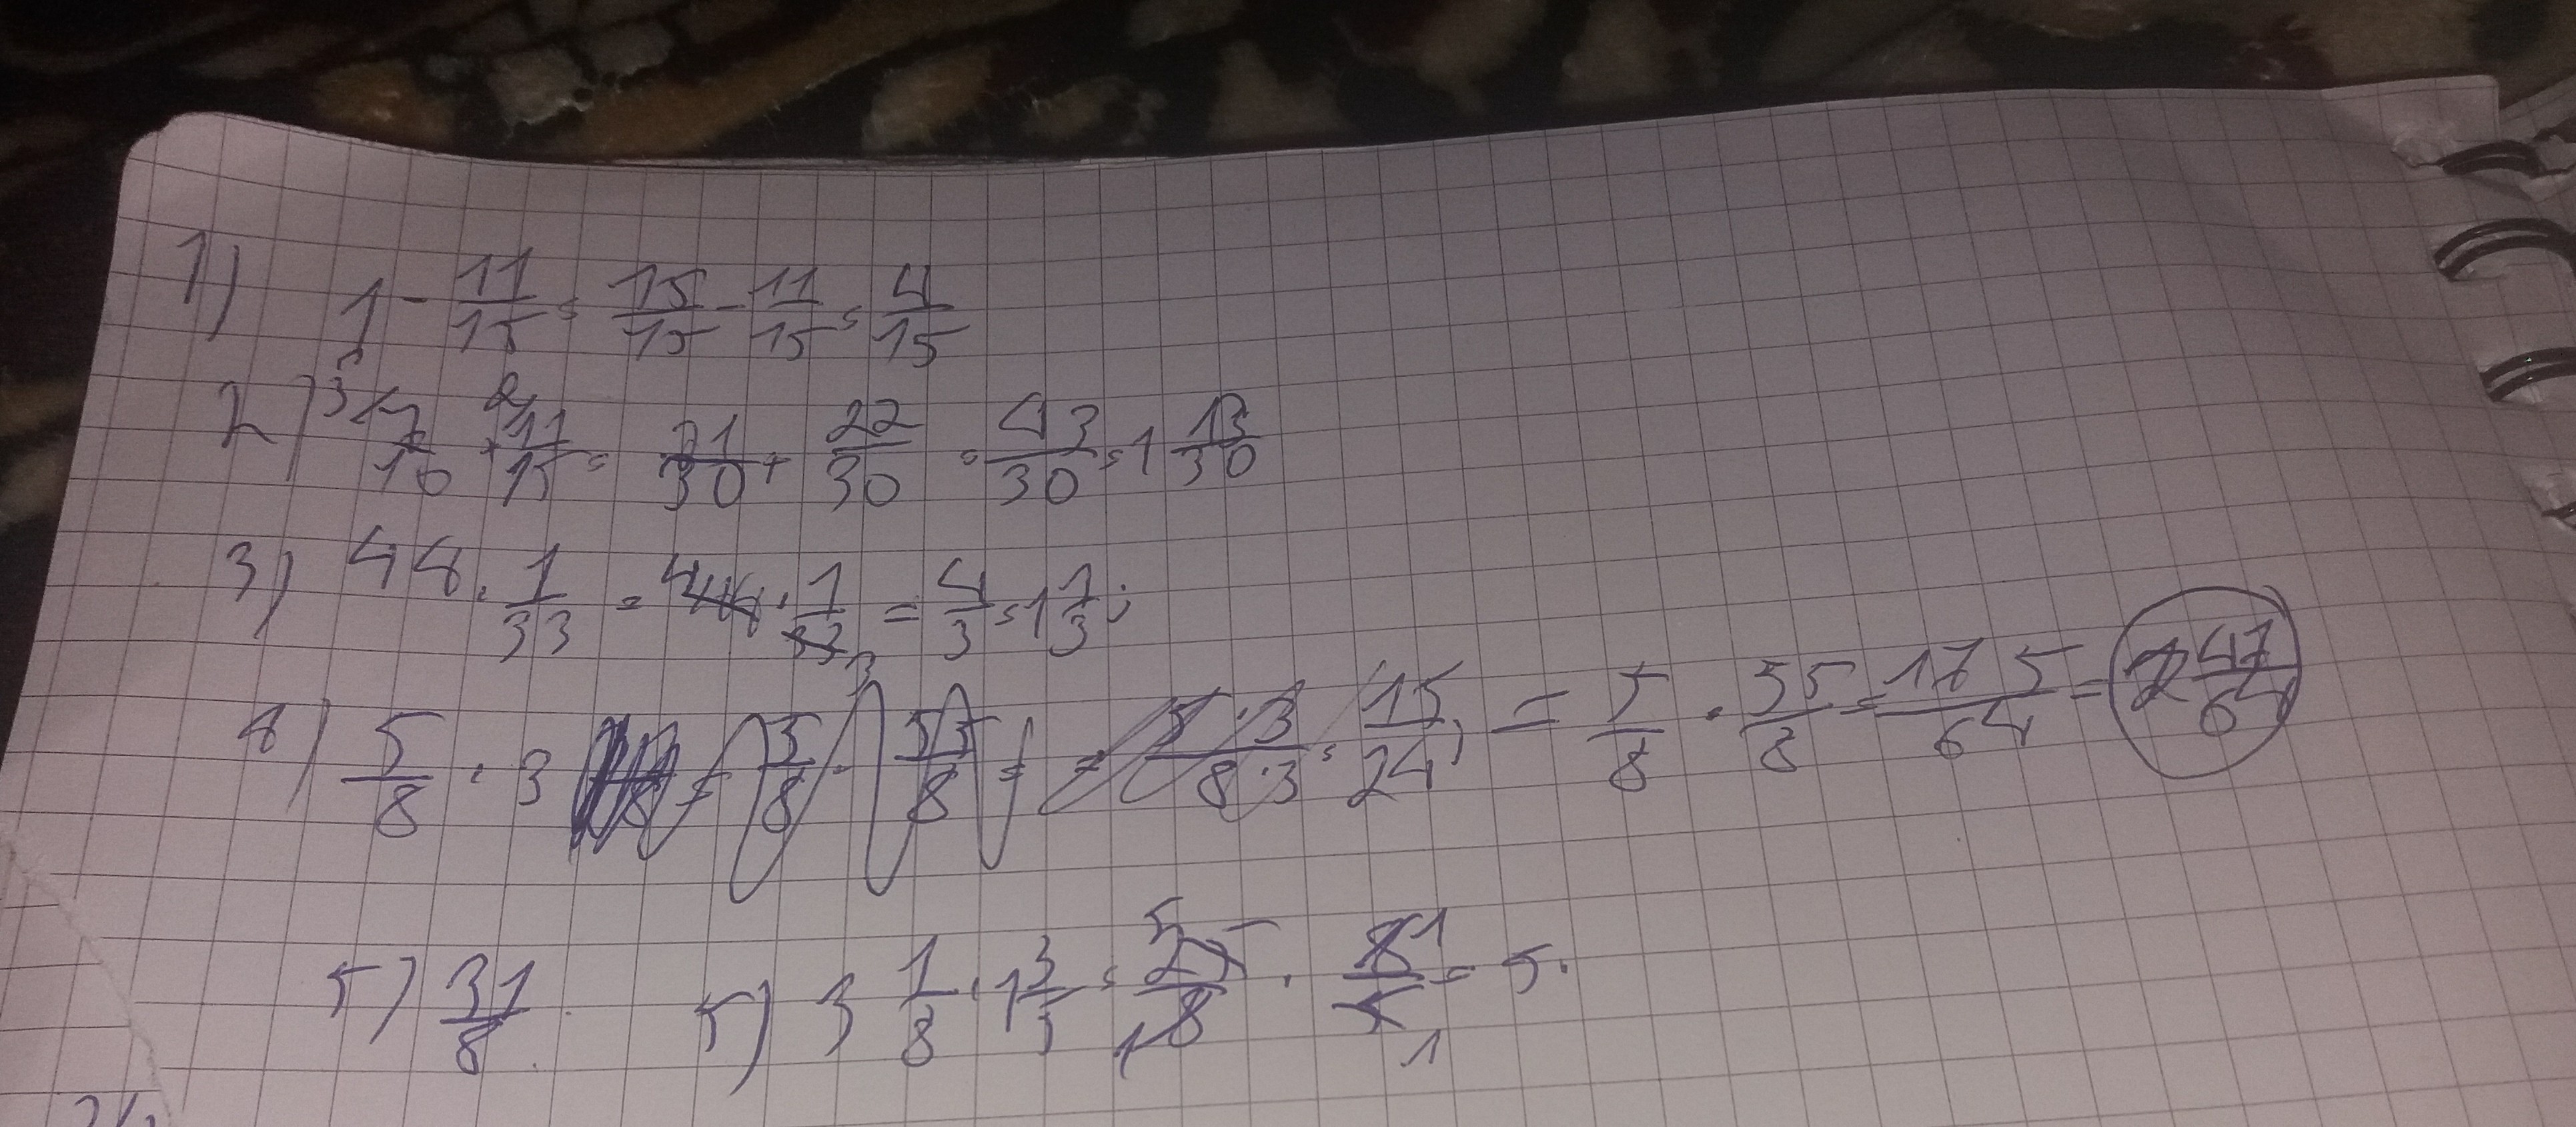 1) 1 - 11/15 = 15/15 - 11/15 = 4/15
2) 3\ 7/10 + 2\ 11/15 = 21/30 + 22/30 = 43/30 = 1 13/30
3) 44 · 1/33 = 4 44 · 1/33 3 = 4/3 = 1 1/3;
4) 5/8 · 3 = 5/8 · 35/8 = = 5·3/8·3 = 15/24; = 5/8 · 35/8 = 175/64 = 2 47/64
5) 31/8. 5) 3 1/8 · 1 3/5 = 5 25/8 1 · 8 1/5 1 = 5.